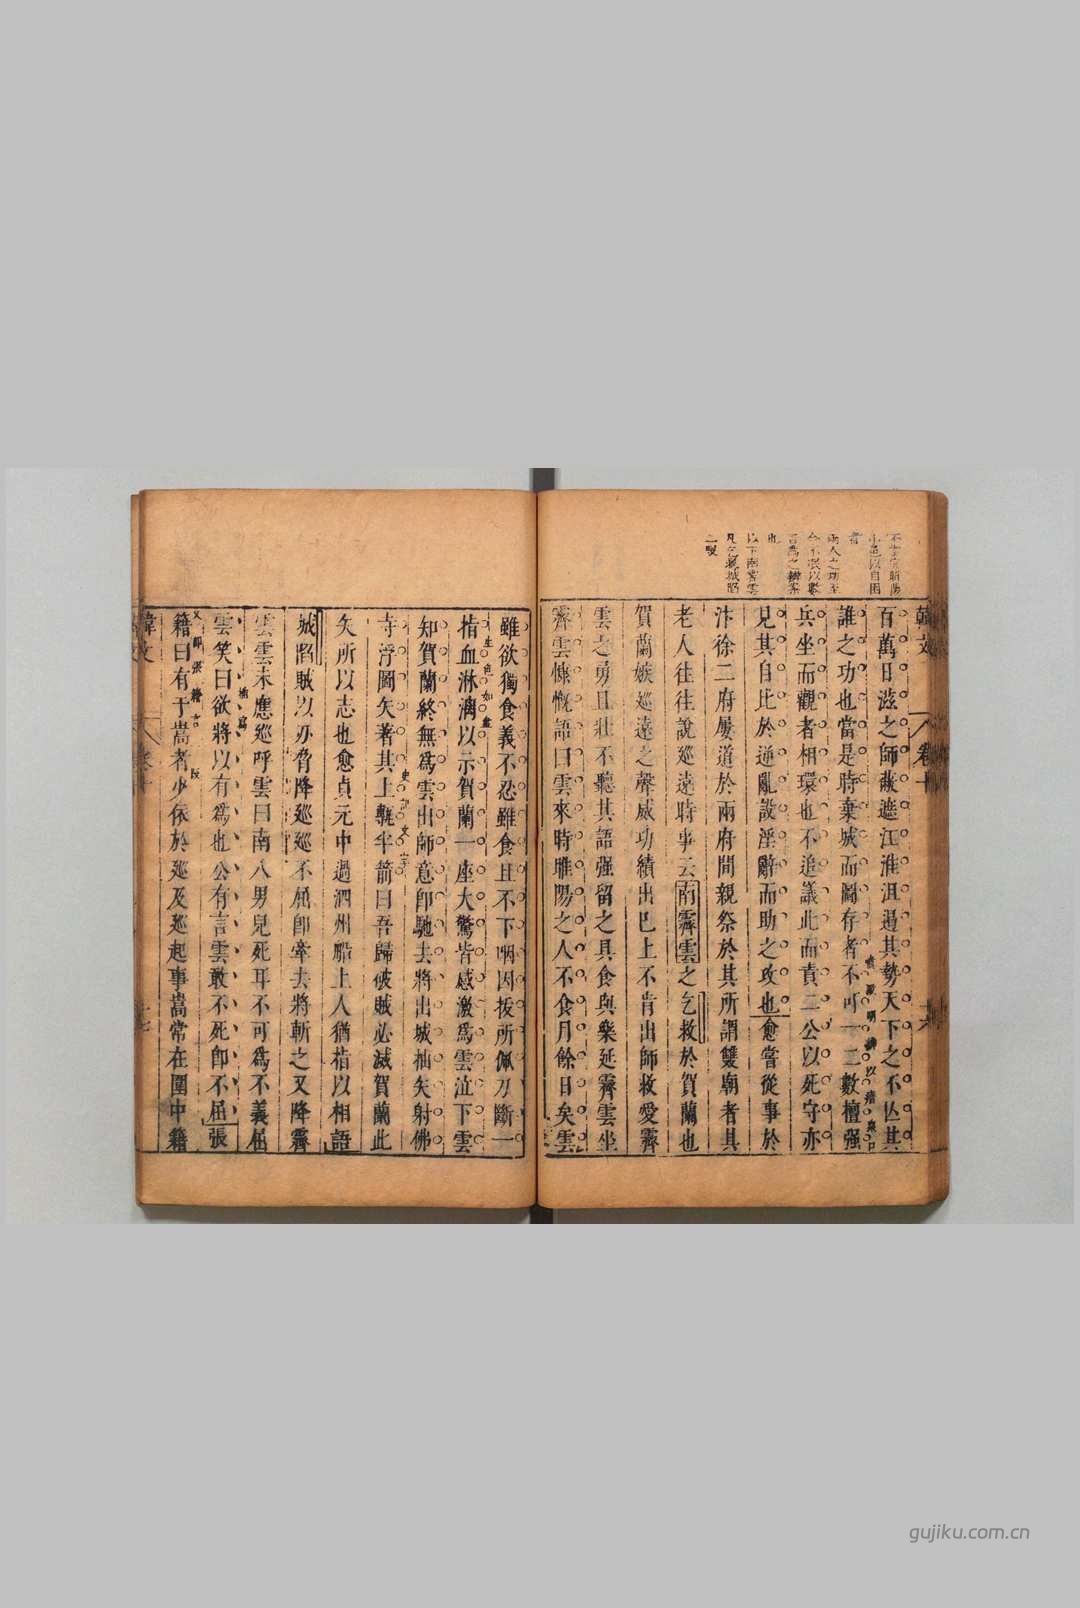 韓文
卷十
百萬日滋之師蔽遮江淮沮遏其勢天下之不亾其
誰之功也當是時棄城而圖存者不可一二數擅强
兵坐而觀者相環也不追議此而責二公以死守亦
見其自比於逆亂設淫辭而助之攻也愈嘗從事於
汴徐二府屢道於兩府間親祭於其所謂雙廟者其
老人往往說巡遠時事云南霽雲之乞救於賀蘭也
賀蘭嫉巡遠之聲威功績出巳上不肯出師救愛霽
雲之勇且壯不聽其語强留之具食與樂延霽雲坐
霽雲慷慨語曰雲來時雎陽之人不食月餘日矣雲
雖欲獨食義不忍雖食且不下咽因拔所佩刀斷一
指血淋漓以示賀蘭一座大驚皆感激爲雲泣下雲
生色如畫
知賀蘭終無爲雲出師意卽馳去將出城抽矢射佛
寺浮圖矢著其上甎半箭曰吾歸破賊必滅賀蘭此
矢所以志也愈貞元中過泗州船上人猶指以相語
城陷賊以刃脅降巡巡不屈卽牽去將斬之又降霽
雲雲未應巡呼雲曰南八男兒死耳不可爲不義屈
雲笑曰欲將以有爲也公有言雲敢不死卽不屈張
籍曰有于嵩者少依於巡及巡起事嵩常在圍中籍
又卽張籍言
韓文